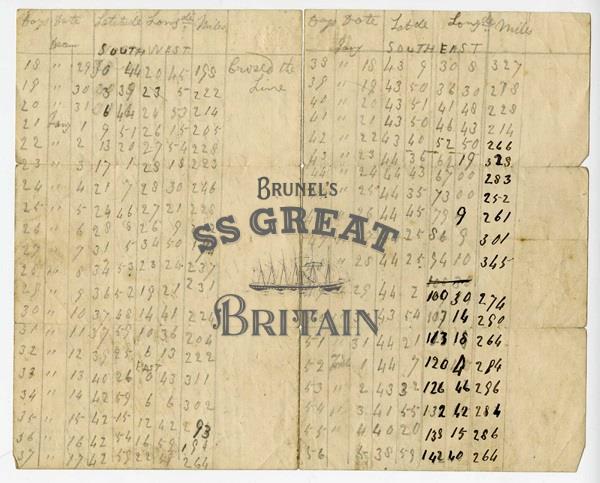 Days Date Latitude Longde Miles
Decem
SOUTH WEST
18 " 29 44 20 45 198 Crossed the
19 " 30 39 23 5 222 Line
20 " 31 24 53 214
21 Jany 1 9 51 26 15 205
22 " 2 13 20 27 54 228
23 " 3 17 1 28 18 223
24 " 4 21 7 28 30 246
25 " 5 24 46 27 21 228
26 " 6 28 8 26 9
27 " 7 31 5 34 50
28 " 8 34 53 23 24 237
29 " 9 36 52 19 21 231
30 " 10 37 48 14 41 224
31 " 11 37 59 10 36 204
32 " 12 39 25 6 13 222
EAST
33 " 13 40 26 0 43 311
34 " 14 42 59 6 6 302
35 " 15 42 15 12 42 293
36 " 16 42 54 16 59 194
37 " 17 42 59 22 264
Days Date Latde Longde Miles
Jany
SOUTH EAST
38 " 18 43 9 30 8 327
39 " 19 43 50 36 30 278
40 " 20 43 51 41 48 228
41 " 21 43 50 46 43 214
42 " 22 43 40 52 50 266
43 " 23 44 36 19 323
44 " 24 44 43 67 00 283
" 25 44 35 73 00 252
26 44 45 79 9 261
44 25 86 9 301
" 28 44 25 94 10 345
29 44 2 100 30 274
43 54 107 14 290
51 31 44 21 113 18 264
52 Feb 1 44 7 120 4 284
53 " 2 43 32 126 46 296
54 " 3 41 55 132 42 284
55 " 4 40 20 138 15 286
56 5 38 59 142 40 264
BRUNEL'S
SS GREAT
BRITAIN